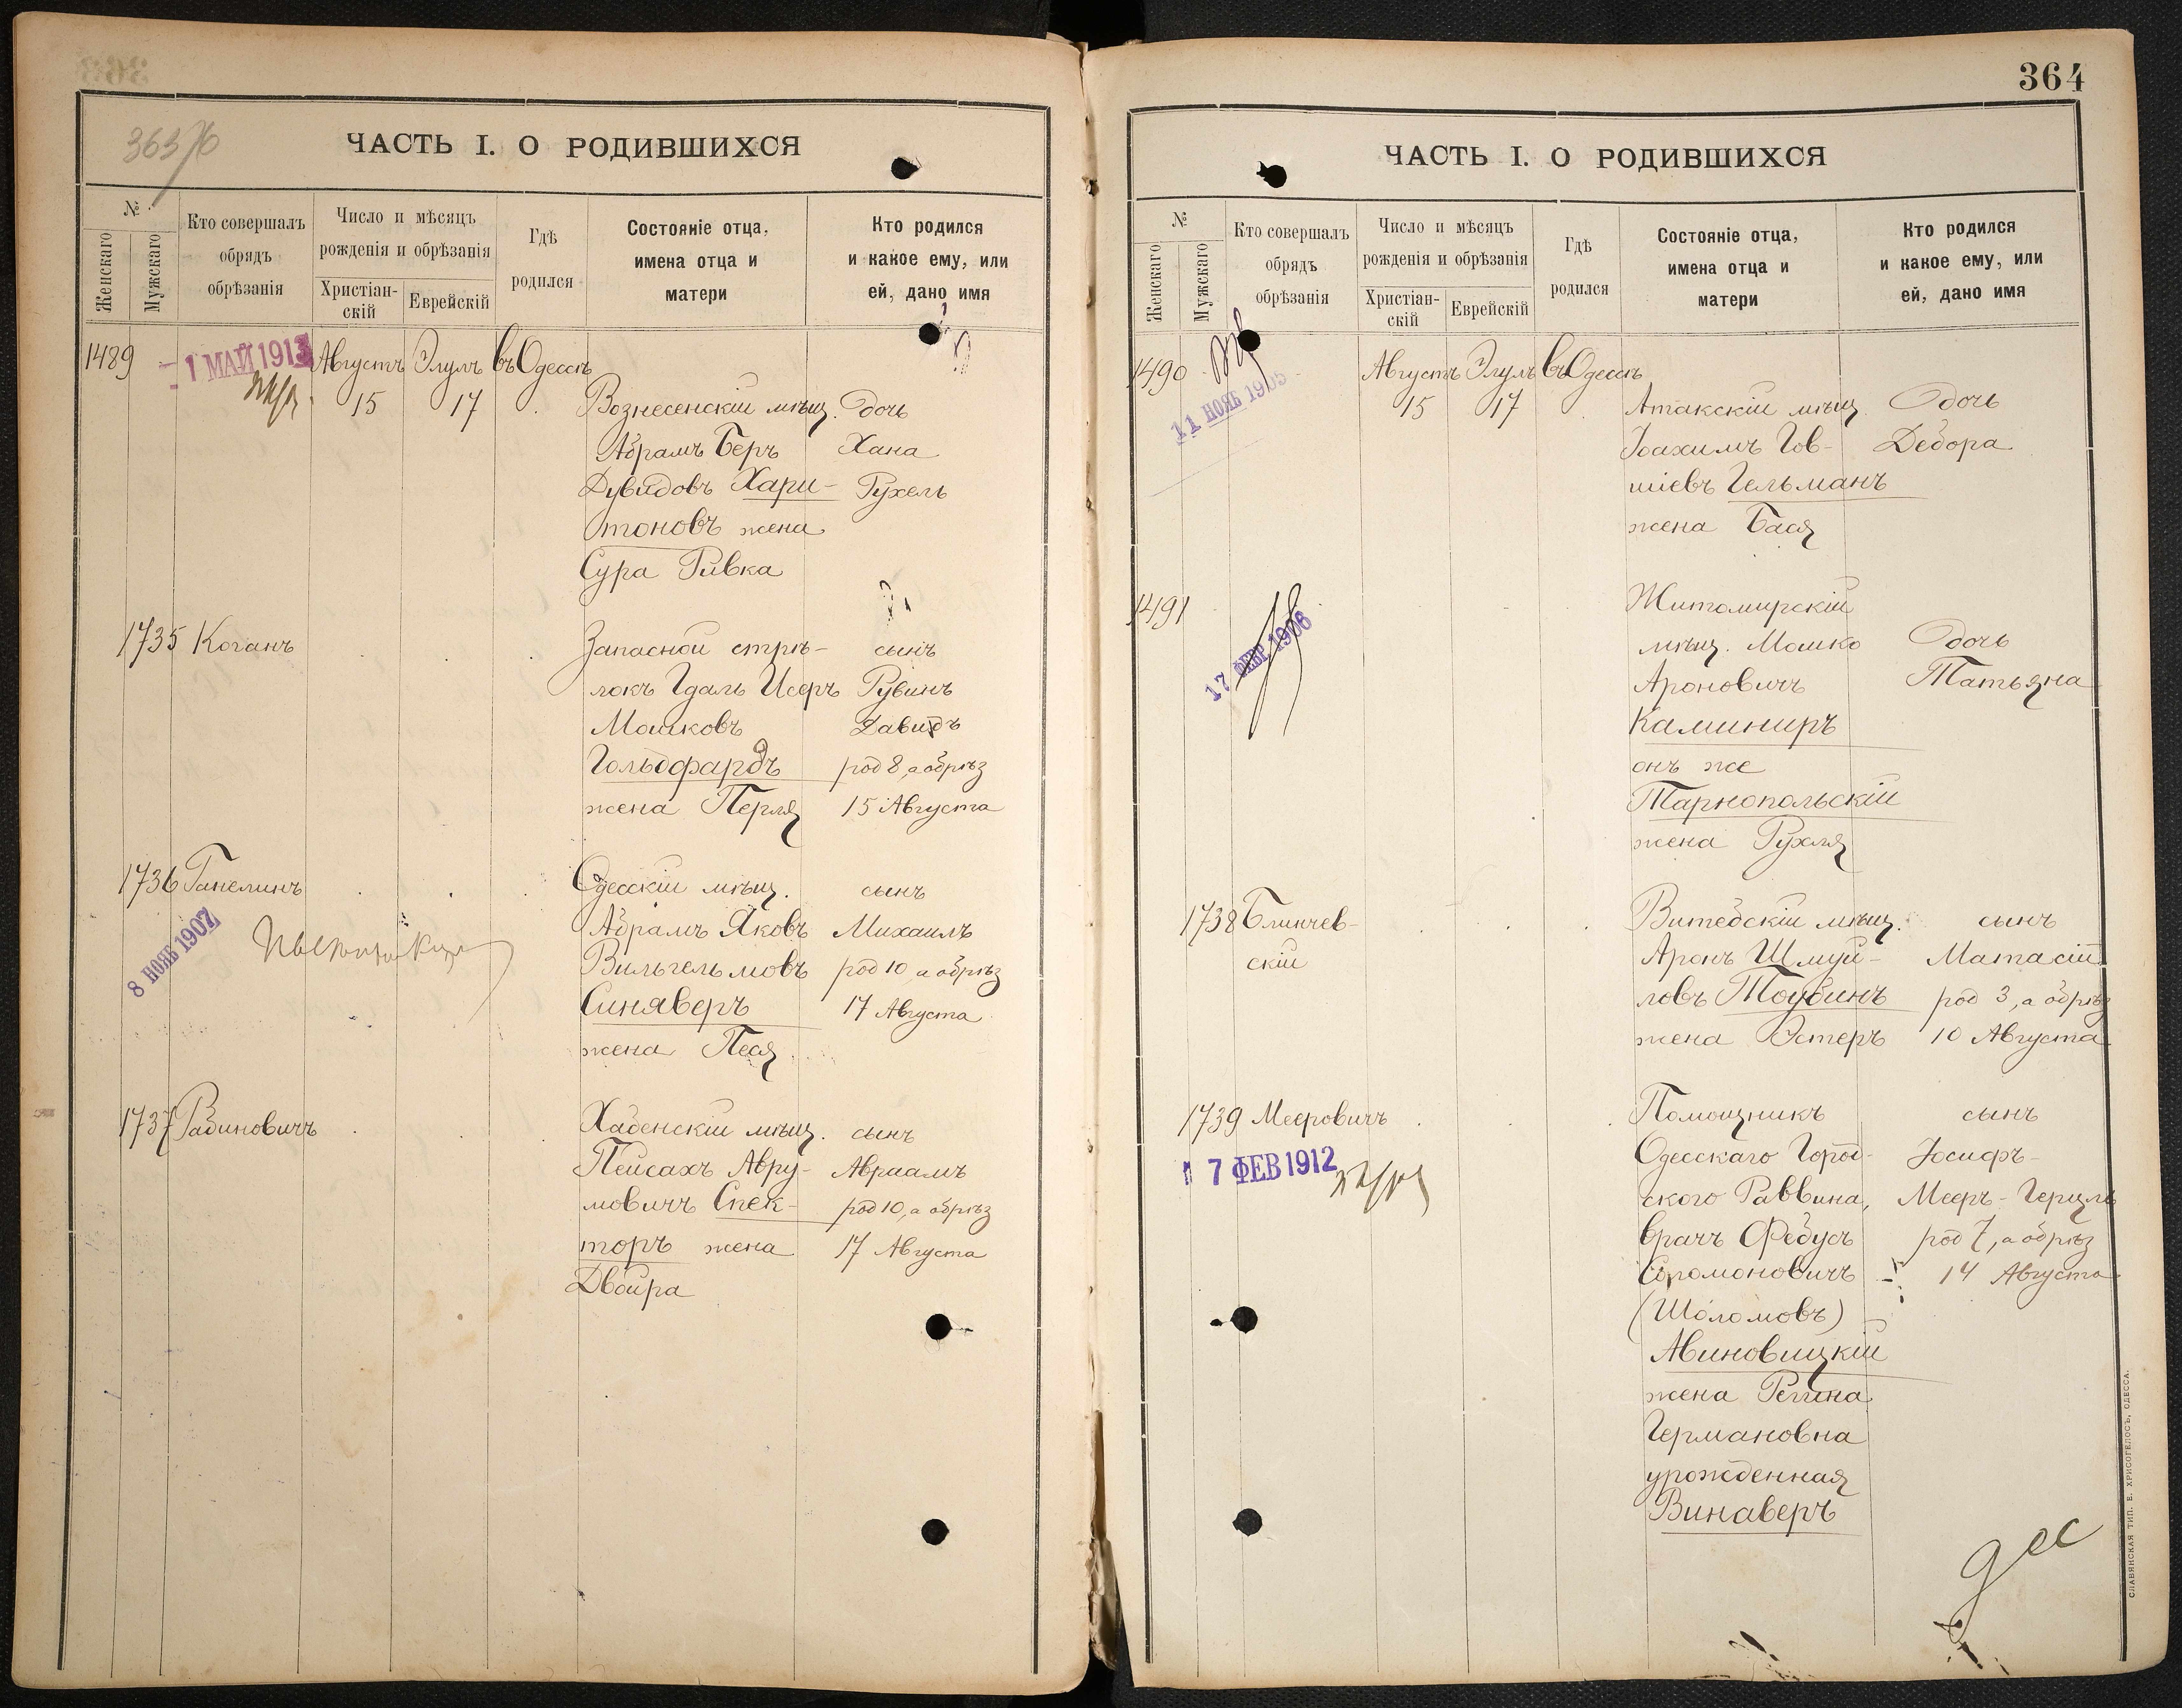 363 об
ЧАСТЬ I. О РОДИВШИХСЯ
№
Женскаго
Мужскаго
Кто совершалъ
обрядъ
обрѣзанія
Число и мѣсяцъ
рожденія и обрѣзанія
Христіан-
скій
Еврейскій
Гдѣ
родился
Состояніе отца,
имена отца и
матери
Кто родился
и какое ему, или
ей, дано имя
1489
1 МАЙ 1913
Августъ Элулъ въ Одессѣ
15 17
Вознесенскій мѣщ. дочь
Абрамъ Беръ Хана
Дувидовъ Хари- Рухель
тоновъ жена
Сура Ривка
1735 Коганъ
Запасной стрѣ- сынъ
локъ Гдаль Исеръ Рувинъ
Мошковъ Давидъ
Гольдфарбъ род 8, а обрѣз
жена Перля 15 Августа
1736 Ганелинъ
Одесскій мѣщ. сынъ
8 НОЯБ 1907
Абрамъ Яковъ Михаилъ
Вильгельмовъ род 10, а обрѣз
Синяверъ 17 Августа
жена Песя
1737 Рабиновичъ
Хабенскій мѣщ. сынъ
Пейсахъ Авру- Авраамъ
мовичъ Спек- род 10, а обрѣз
торъ жена 17 Августа
Двойра
364
ЧАСТЬ I. О РОДИВШИХСЯ
№
Женскаго
Мужскаго
Кто совершалъ
обрядъ
обрѣзанія
Число и мѣсяцъ
рожденія и обрѣзанія
Христіан-
скій
Еврейскій
Гдѣ
родился
Состояніе отца,
имена отца и
матери
Кто родился
и какое ему, или
ей, дано имя
1490
11 НОЯБ 1905
Августъ Элулъ въ Одессѣ
15 17
Атакскій мѣщ. дочь
Іоахимъ Гов- Дебора
шіевъ Гельманъ
жена Бася
1491
17 ФЕВР 1906
Житомирскій
мѣщ. Мошко дочь
Ароновичъ Татьяна
Каминиръ
онъ же
Тарнопольскій
жена Рухля
1738 Блинчев-
скій
Витебскій мѣщ. сынъ
Аронъ Шмуй- Матасій
ловъ Тоубинъ род 3, а обрѣз
жена Эстеръ 10 Августа
1739 Мееровичъ
7 ФЕВ 1912
Помощникъ сынъ
Одесскаго Город- Іосифъ-
ского Раввина, Мееръ-Герцль
врачъ Федусь род 7, а обрѣз
Соломоновичъ 14 Августа
(Шоломовъ)
Авиновицкій
жена Регина
Германовна
урожденная
Винаверъ
СЛАВЯНСКАЯ ТИП. Е. ХРИСОГЕЛОСЪ, ОДЕССА.